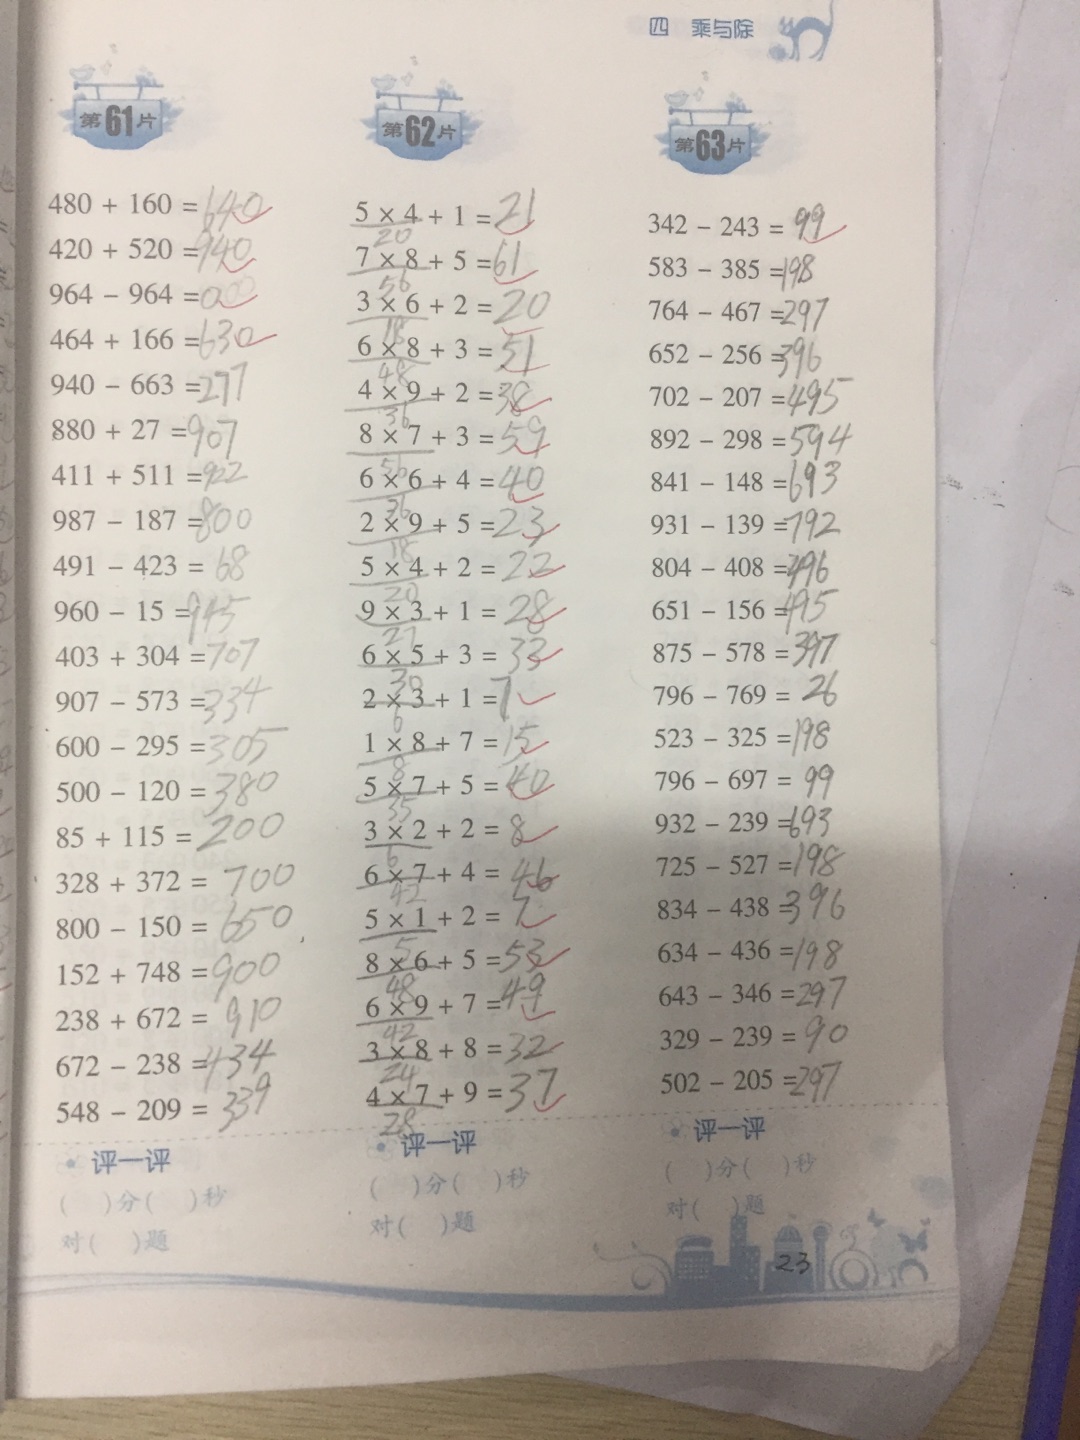 四 乘与除
第61片
480 + 160 = 640
420 + 520 = 940
964 − 964 = 0
464 + 166 = 630
940 − 663 = 277
880 + 27 = 907
411 + 511 = 922
987 − 187 = 800
491 − 423 = 68
960 − 15 = 945
403 + 304 = 707
907 − 573 = 334
600 − 295 = 305
500 − 120 = 380
85 + 115 = 200
328 + 372 = 700
800 − 150 = 650
152 + 748 = 900
238 + 672 = 910
672 − 238 = 434
548 − 209 = 339
评一评
( )分( )秒
对( )题
第62片
5 × 4 + 1 = 21
20
7 × 8 + 5 = 61
56
3 × 6 + 2 = 20
18
6 × 8 + 3 = 51
48
4 × 9 + 2 = 38
36
8 × 7 + 3 = 59
56
6 × 6 + 4 = 40
36
2 × 9 + 5 = 23
18
5 × 4 + 2 = 22
20
9 × 3 + 1 = 28
27
6 × 5 + 3 = 33
30
2 × 3 + 1 = 7
6
1 × 8 + 7 = 15
8
5 × 7 + 5 = 40
35
3 × 2 + 2 = 8
6
6 × 7 + 4 = 46
42
5 × 1 + 2 = 7
5
8 × 6 + 5 = 53
48
6 × 9 + 7 = 49
42
3 × 8 + 8 = 32
24
4 × 7 + 9 = 37
28
评一评
( )分( )秒
对( )题
第63片
342 − 243 = 99
583 − 385 = 198
764 − 467 = 297
652 − 256 = 396
702 − 207 = 495
892 − 298 = 594
841 − 148 = 693
931 − 139 = 792
804 − 408 = 396
651 − 156 = 495
875 − 578 = 397
796 − 769 = 26
523 − 325 = 198
796 − 697 = 99
932 − 239 = 693
725 − 527 = 198
834 − 438 = 396
634 − 436 = 198
643 − 346 = 297
329 − 239 = 90
502 − 205 = 297
评一评
( )分( )秒
对( )题
23